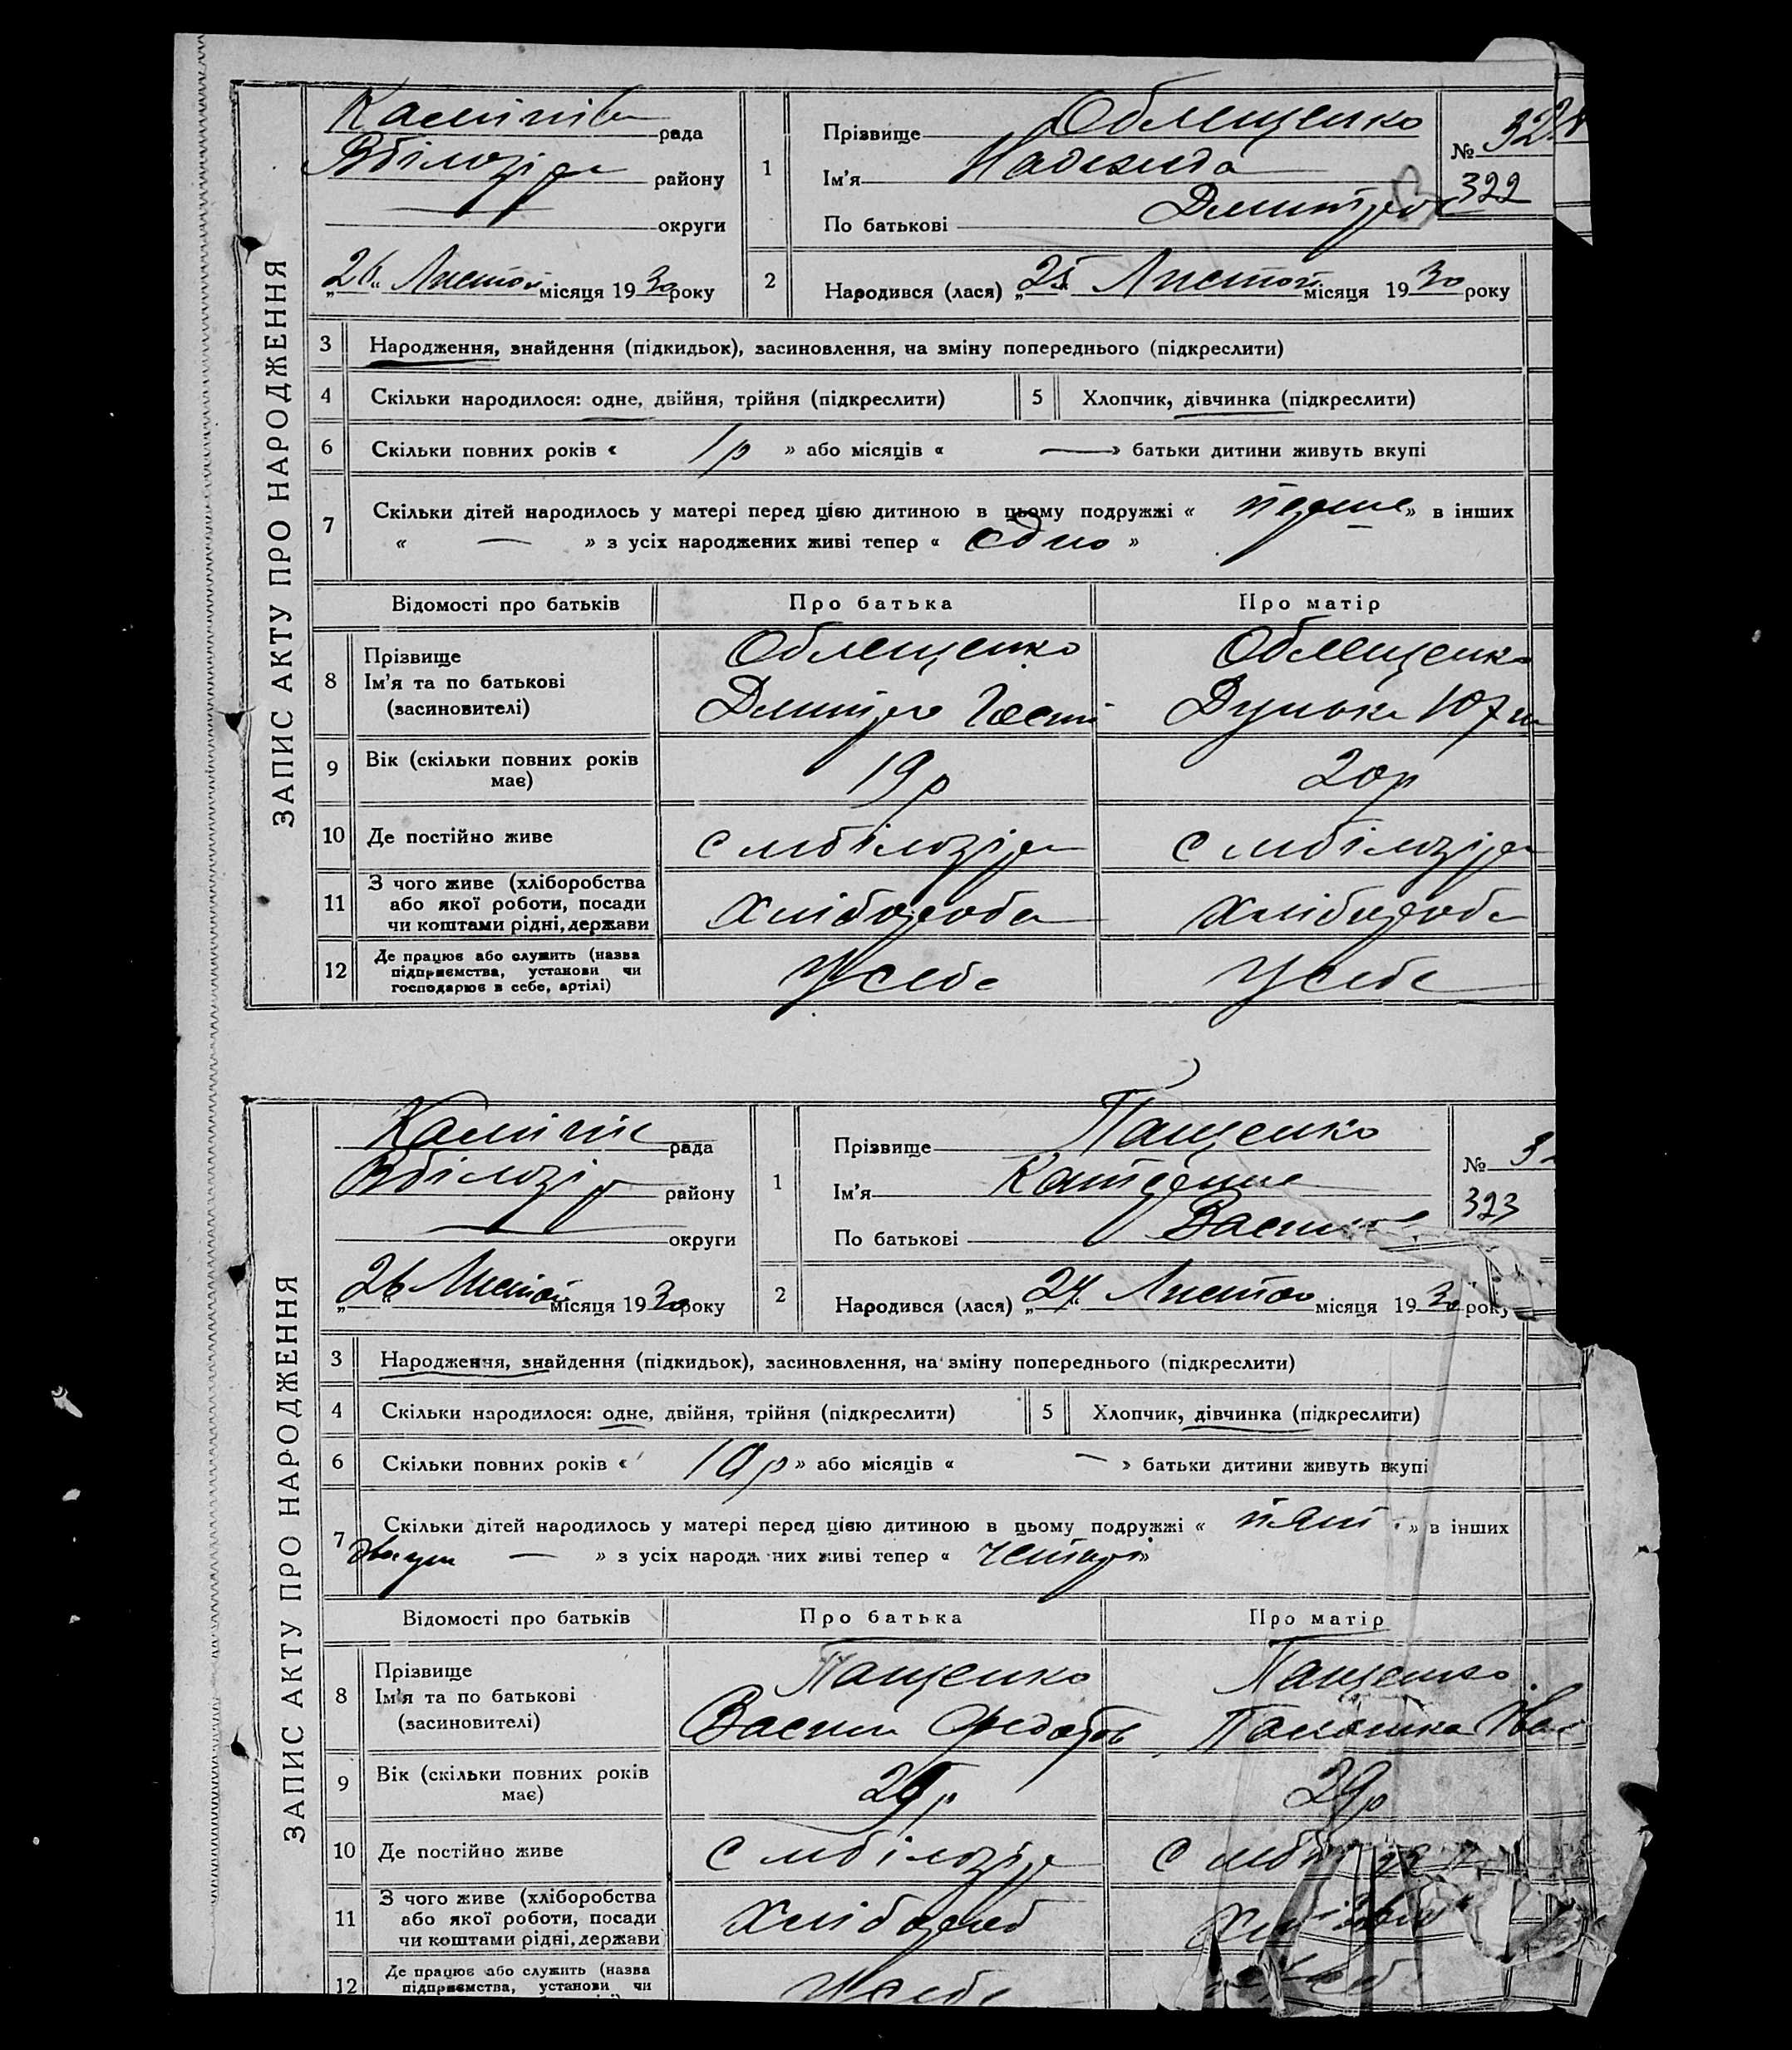 ЗАПИС АКТУ ПРО НАРОДЖЕННЯ
рада
району
округи
„26“ Листоп місяця 1930 року
1
Прізвище
Ім'я Надежда
По батькові Дмитров
№
322
2
Народився (лася) „25“ Листоп місяця 1930 року
3 Народження, знайдення (підкидьок), засиновлення, на зміну попереднього (підкреслити)
4 Скільки народилося: одне, двійня, трійня (підкреслити)
5 Хлопчик, дівчинка (підкреслити)
6 Скільки повних років « 1р » або місяців « — » батьки дитини живуть вкупі
7 Скільки дітей народилось у матері перед цією дитиною в цьому подружжі « перше » в інших
« — » з усіх народжених живі тепер « одно »
Відомості про батьків
Про батька
Про матір
8 Прізвище
Ім'я та по батькові
(засиновителі)
Дмитро
Дунька
9 Вік (скільки повних років має)
19р
20р
10 Де постійно живе
с мбілозір
с мбілозір
11 З чого живе (хліборобства або якої роботи, посади чи коштами рідні, держави
Хлібороба
Хлібороб
12 Де працює або служить (назва підприємства, установи чи господарює в себе, артілі)
У себе
У себе
ЗАПИС АКТУ ПРО НАРОДЖЕННЯ
рада
району
округи
„26“ Листоп місяця 1930 року
1
Прізвище Пащенко
Ім'я Катерина
По батькові Васил
№ 3
323
2
Народився (лася) „24“ Листоп місяця 1930 року
3 Народження, знайдення (підкидьок), засиновлення, на зміну попереднього (підкреслити)
4 Скільки народилося: одне, двійня, трійня (підкреслити)
5 Хлопчик, дівчинка (підкреслити)
6 Скільки повних років « 10р » або місяців « — » батьки дитини живуть вкупі
7 Скільки дітей народилось у матері перед цією дитиною в цьому подружжі « пять » в інших
— » з усіх народжених живі тепер « четарі »
Відомості про батьків
Про батька
Про матір
8 Прізвище
Ім'я та по батькові
(засиновителі)
Пащенко
Васил Федотов
Пащенко
Палашка Іван
9 Вік (скільки повних років має)
29р
29р
10 Де постійно живе
с мбілозір
с мбі
11 З чого живе (хліборобства або якої роботи, посади чи коштами рідні, держави
Хлібороб
12 Де працює або служить (назва підприємства, установи чи
У себе